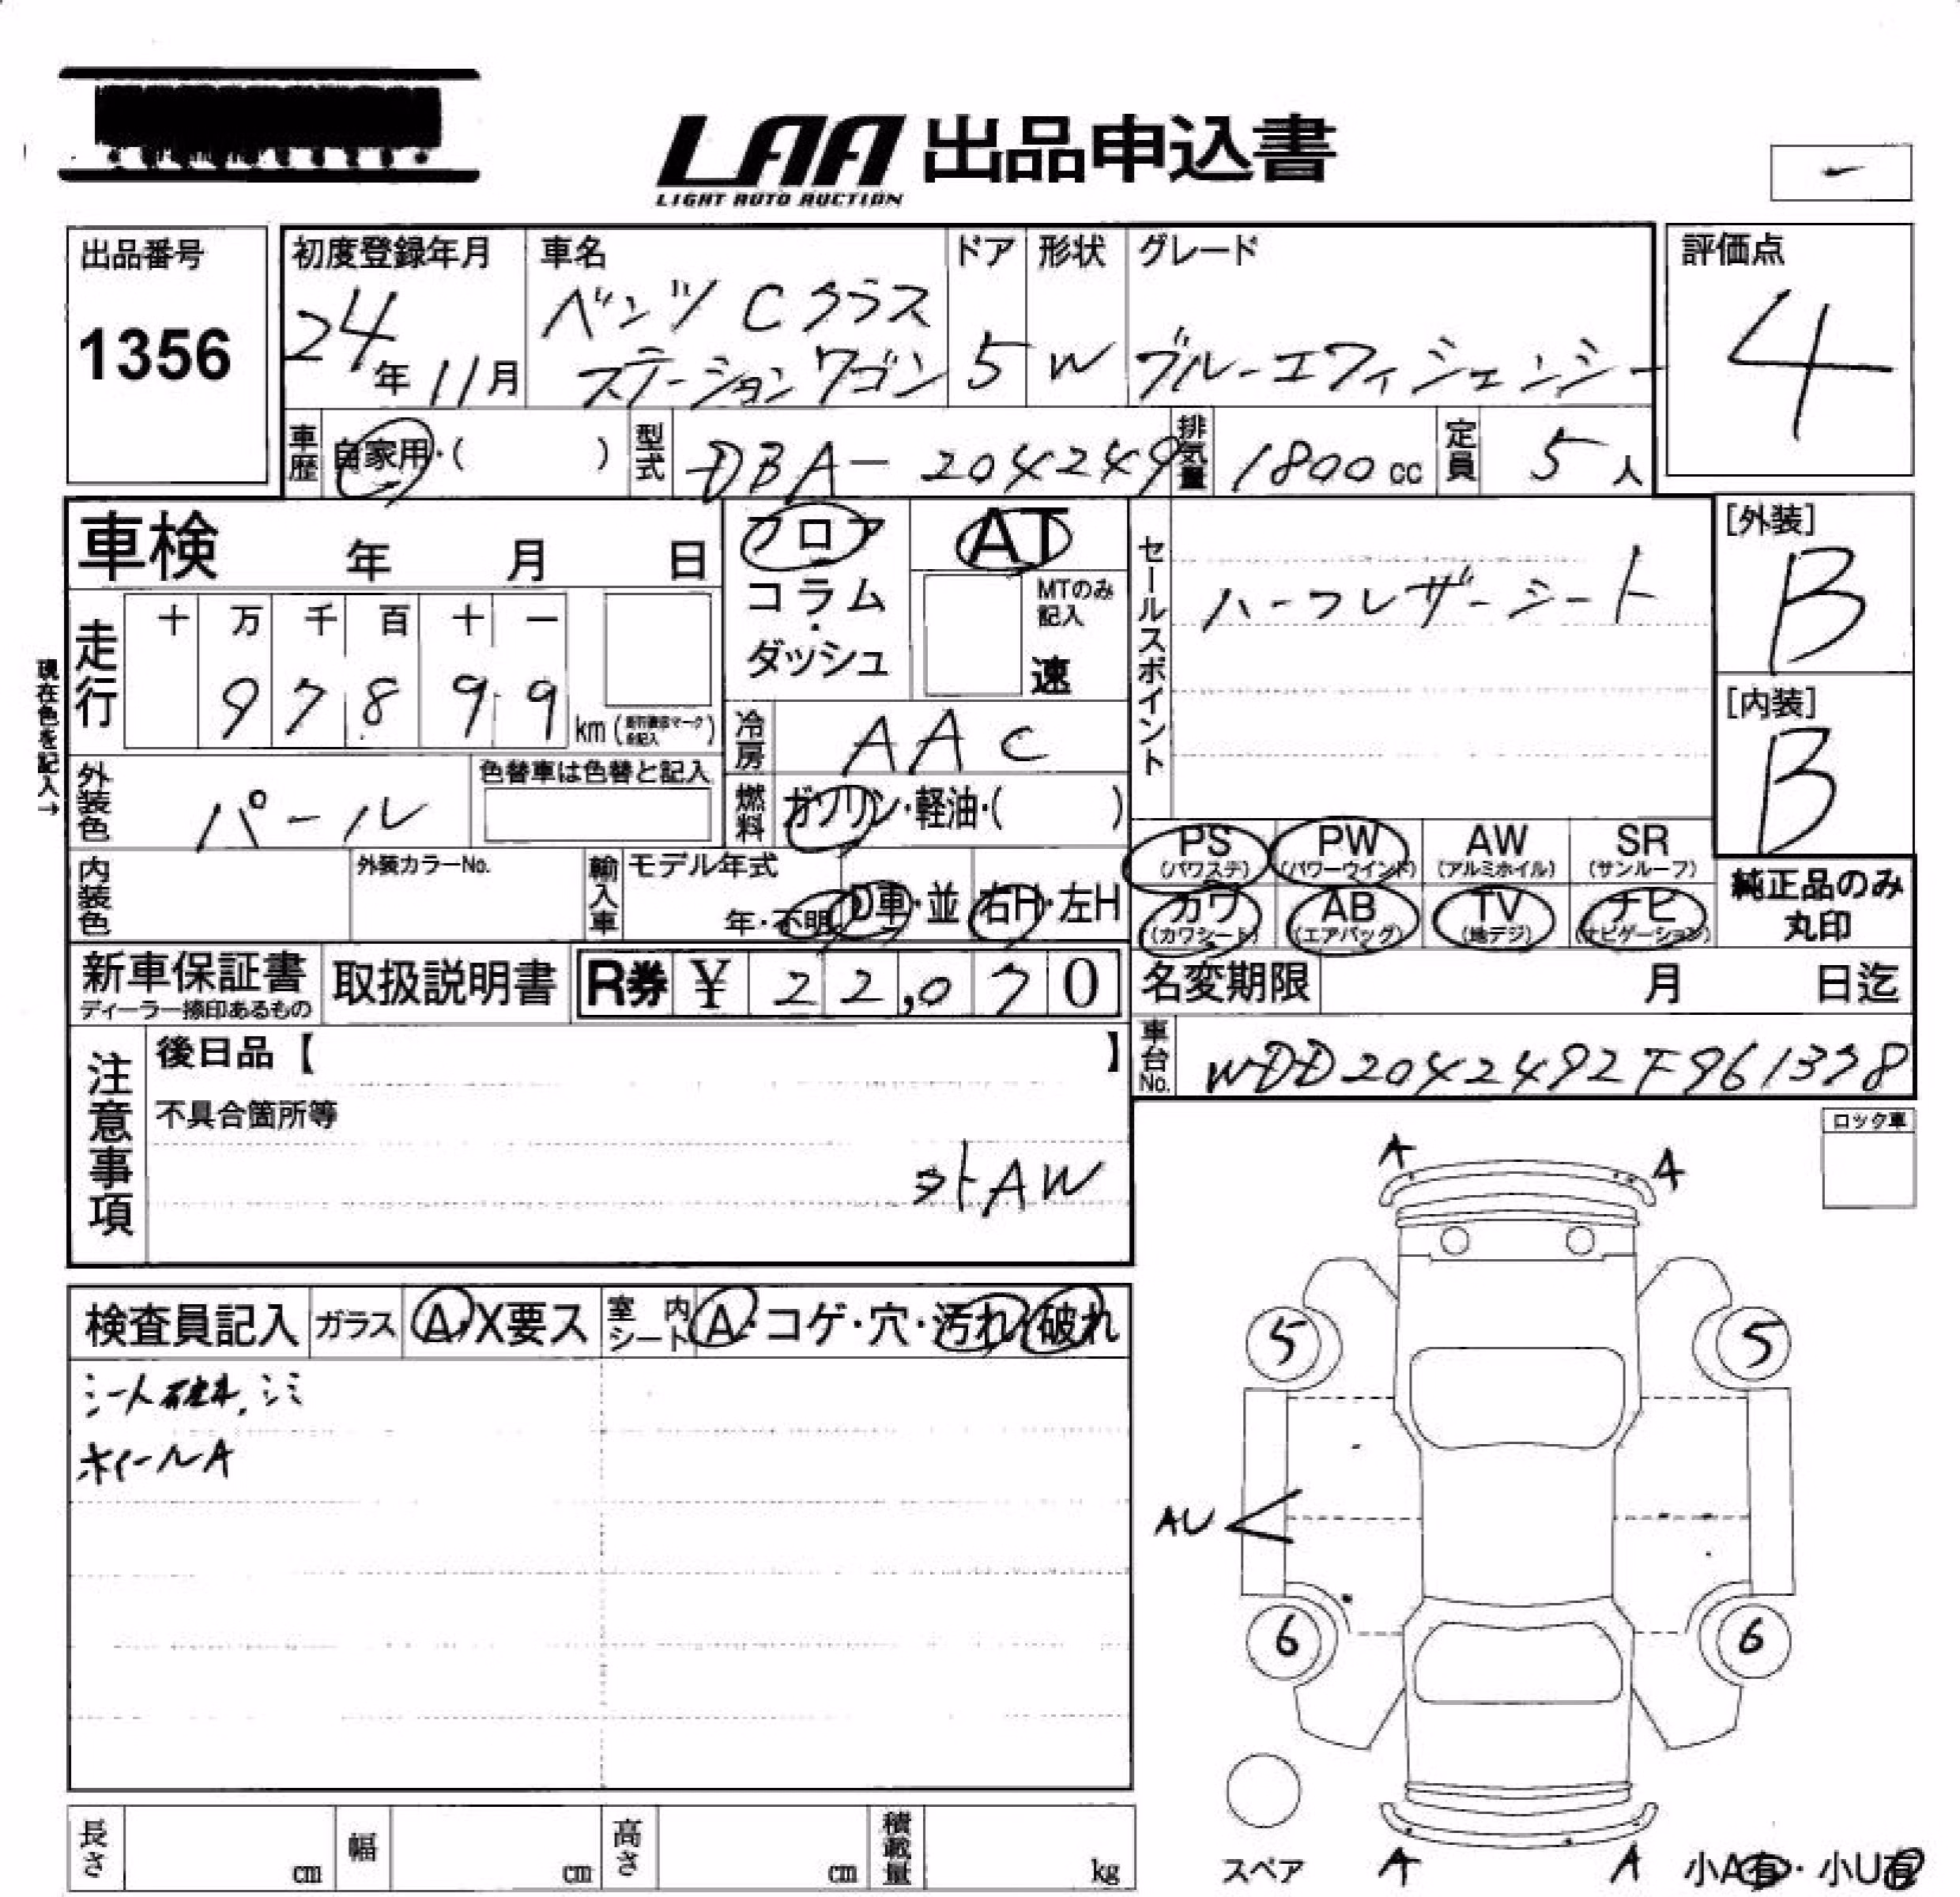 LAA 出品申込書
LIGHT AUTO AUCTION
-
出品番号
1356
初度登録年月
24年11月
車名
ベンツ Cクラス
ステーションワゴン
ドア
5
形状
W
グレード
ブルーエフィシェンシー
評価点
4
車歴 自家用・( )
型式 DBA-204249
排気量 1800cc
定員 5人
車検 年 月 日
フロア
コラム・ダッシュ
AT
MTのみ記入
速
セールスポイント
ハーフレザーシート
[外装]
B
[内装]
B
現在色を記入→
走行
十 万 千 百 十 一
9 7 8 9 9 km
冷房 AAC
外装色 パール
色替車は色替と記入
燃料 ガソリン・軽油・( )
PS (パワステ)
PW (パワーウインド)
AW (アルミホイル)
SR (サンルーフ)
カワ (カワシート)
AB (エアバッグ)
TV (地デジ)
ナビ (ナビゲーション)
純正品のみ
丸印
内装色
外装カラーNo.
輸入車
モデル年式
年・不明
D車・並
右H・左H
新車保証書
ディーラー捺印あるもの
取扱説明書
R券 ¥ 22,070
名変期限 月 日迄
車台No. WDD2042492F961338
注意事項
後日品【 】
不具合箇所等
外AW
ロック車
検査員記入
ガラス A・X要ス
室内シート A・コゲ・穴・汚れ・破れ
シート破れ、シミ
ホイールA
A
A
5
5
AU
6
6
スペア
A
A
小A有・小U有
長さ cm
幅 cm
高さ cm
積載量 kg